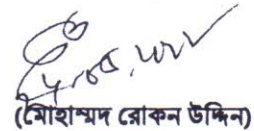 (মোহাম্মদ রোকন উদ্দিন)